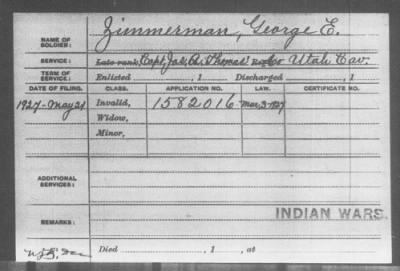 NAME OF SOLDIER: Zimmerman, George E.
SERVICE: Late rank, Capt. Jas. A. Thomas' Co Utah Cav.
TERM OF SERVICE: Enlisted , 1 Discharged , 1
DATE OF FILING. CLASS. APPLICATION NO. LAW. CERTIFICATE NO.
1927-May 21 Invalid, 1582016 Mar. 3-1927
Widow,
Minor,
ADDITIONAL SERVICES:
INDIAN WARS.
REMARKS:
Died , 1 , at